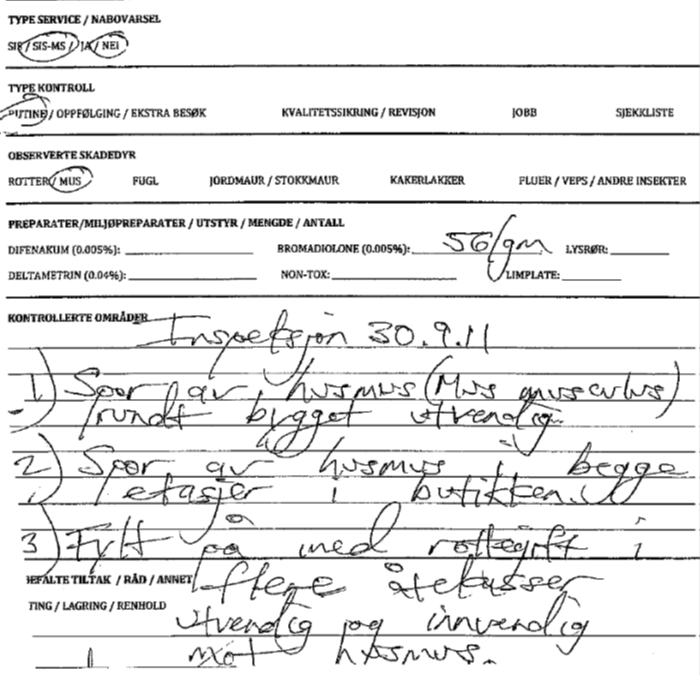 TYPE SERVICE / NABOVARSEL
SIF / SIS-MS / JA / NEI
TYPE KONTROLL
RUTINE / OPPFØLGING / EKSTRA BESØK KVALITETSSIKRING / REVISJON JOBB SJEKKLISTE
OBSERVERTE SKADEDYR
ROTTER / MUS FUGL JORDMAUR / STOKKMAUR KAKERLAKKER FLUER / VEPS / ANDRE INSEKTER
PREPARATER/MILJØPREPARATER / UTSTYR / MENGDE / ANTALL
DIFENAKUM (0.005%): BROMADIOLONE (0.005%): 56/gm LYSRØR:
DELTAMETRIN (0.04%): NON-TOX: LIMPLATE:
KONTROLLERTE OMRÅDER
Inspeksjon 30.9.11
1) Spor av husmus (Mus musculus)
rundt bygget utvendig.
2) Spor av husmus i begge
etasjer i butikken.
3) Fylt på med rottegift i
BEFALTE TILTAK / RÅD / ANNET flere åtekasser
TING / LAGRING / RENHOLD
utvendig og innvendig
mot husmus.